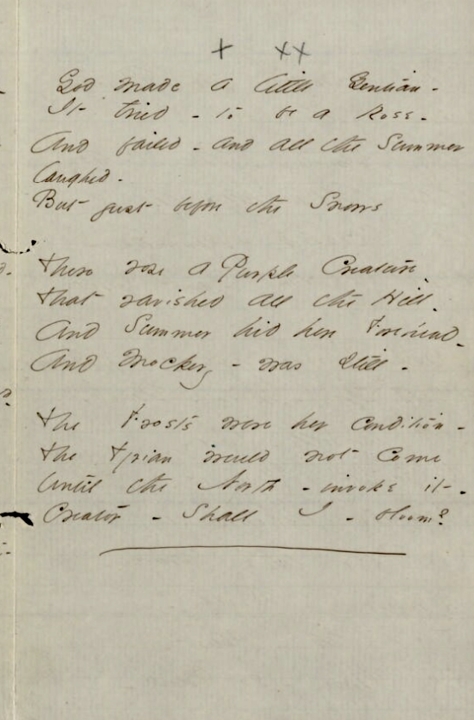 + ++
God made a little Gentian -
It tried - to be a Rose -
And failed - and all the Summer
laughed -
But just before the Snows

There rose a Purple Creature
That ravished all the Hill -
And Summer hid her Forehead -
And Mockery - was still -

The Frosts were her condition -
The Tyrian would not come
Until the North - invoke it -
Creator - Shall I - bloom?